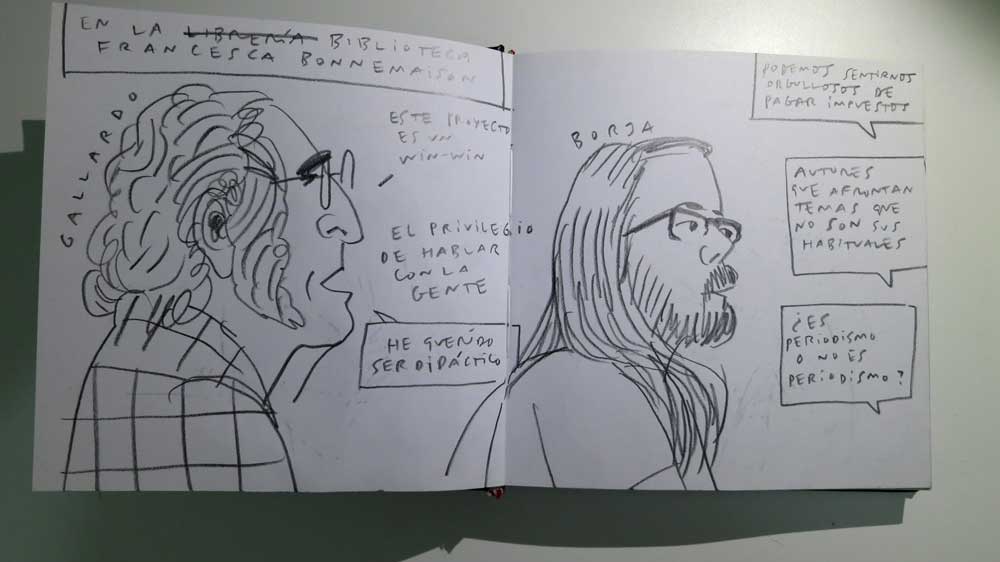 EN LA LIBRERÍA BIBLIOTECA
FRANCESCA BONNEMAISON
GALLARDO
ESTE PROYECTO
ES UN
WIN-WIN
EL PRIVILEGIO
DE HABLAR
CON LA
GENTE
HE QUERIDO
SER DIDÁCTICO
BORJA
PODEMOS SENTIRNOS
ORGULLOSOS DE
PAGAR IMPUESTOS
AUTORES
QUE AFRONTAN
TEMAS QUE
NO SON SUS
HABITUALES
¿ES
PERIODISMO
O NO ES
PERIODISMO?